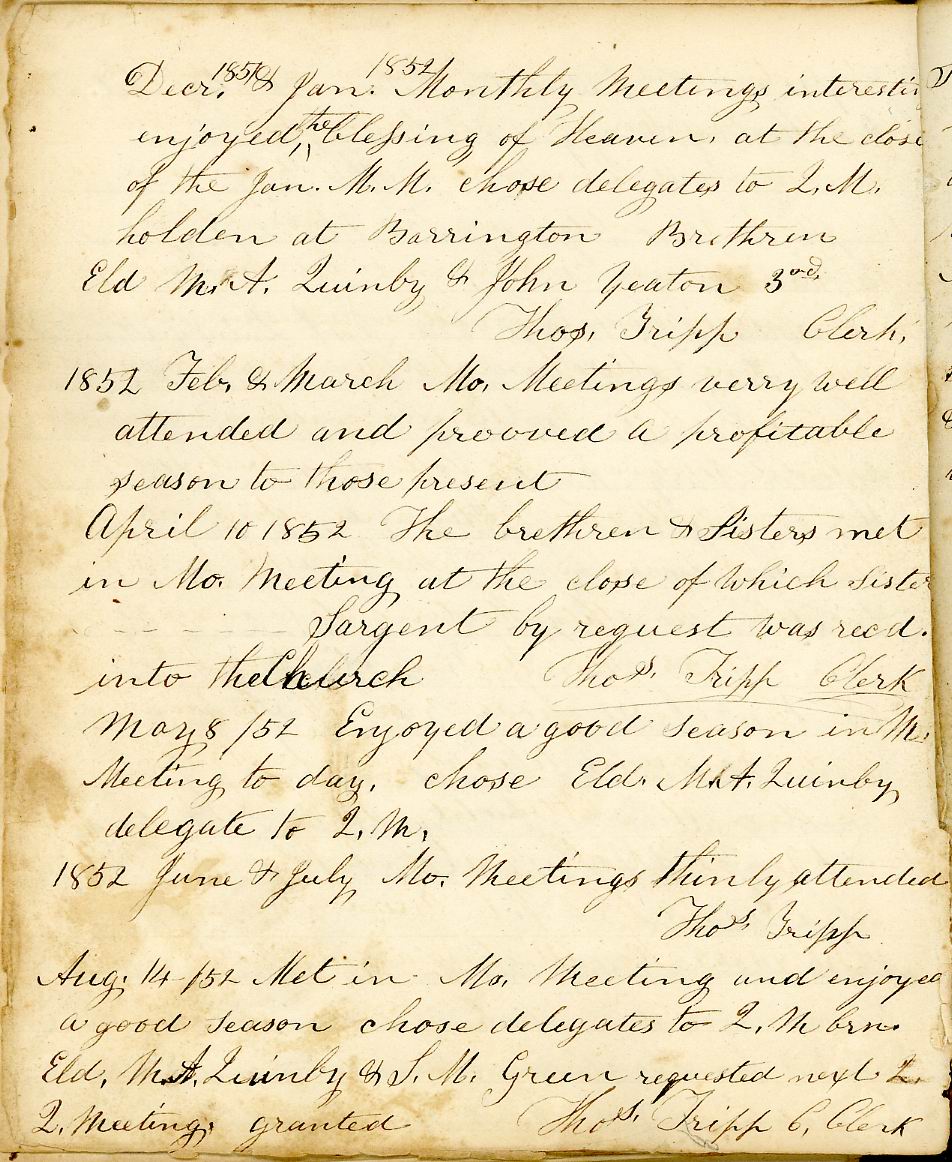 Decr. 1851 & Jan. 1852 Monthly Meetings interestin
enjoyed, the blessing of Heaven. at the close
of the Jan. M. M. chose delegates to Q. M.
holden at Barrington Brethren
Eld M. A. Quinby & John Yeaton 3rd
Thos. Tripp Clerk,
1852 Feb. & March Mo. Meetings verry well
attended and prooved a profitable
season to those present
April 10 1852 The brethren & Sisters met
in Mo. Meeting at the close of which sister
- - - - - Sargent by request was recd.
into the Church Thos. Tripp Clerk
May 8 /52 Enjoyed a good season in M.
Meeting to day. chose Eld. M. A. Quinby
delegate to Q. M.
1852 June & July Mo. Meetings thinly attended
Thos. Tripp
Aug. 14 /52 Met in Mo. Meeting and enjoyed
a good season chose delegates to Q. M brn.
Eld. M. A. Quinby & S. M. Green requested next
Q. Meeting. granted Thos. Tripp C. Clerk